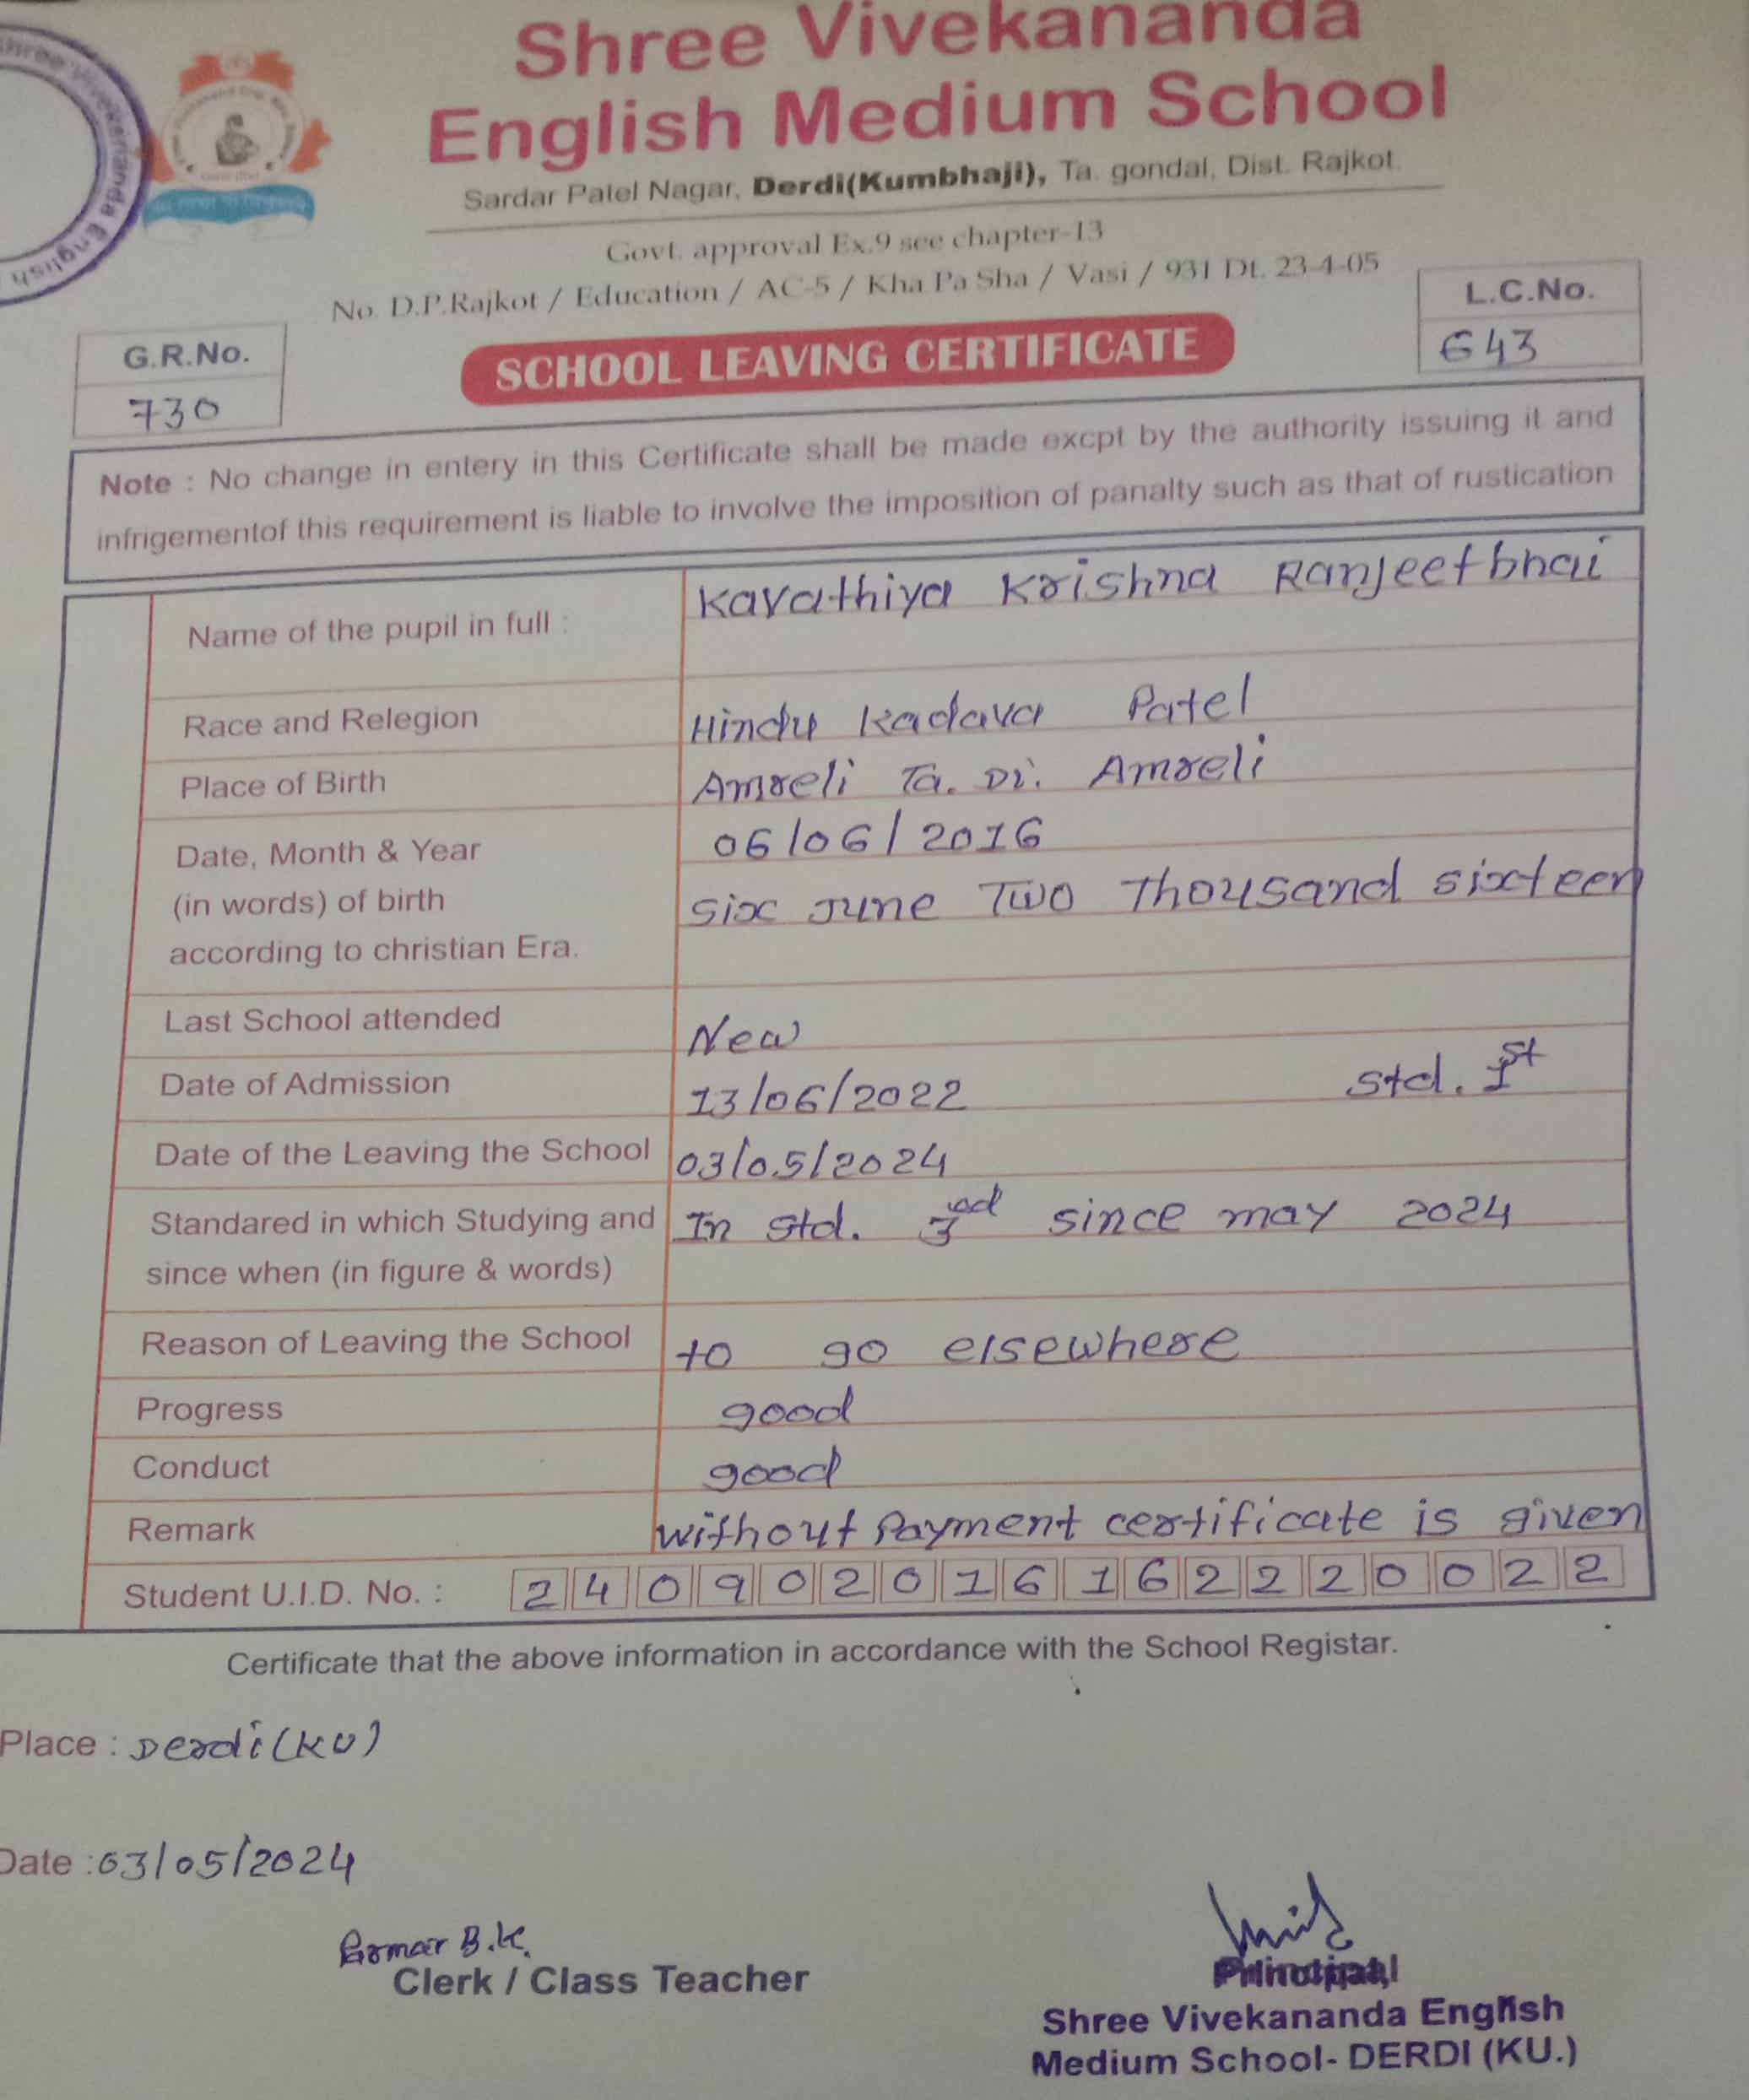 Shree Vivekananda
English Medium School
Sardar Patel Nagar, Derdi(Kumbhaji), Ta. gondal, Dist. Rajkot.
Govt. approval Ex.9 see chapter-13
No. D.P.Rajkot / Education / AC-5 / Kha Pa Sha / Vasi / 931 Dt. 23-4-05
L.C.No.
643
G.R.No.
730
SCHOOL LEAVING CERTIFICATE
Note : No change in entery in this Certificate shall be made excpt by the authority issuing it and
infrigementof this requirement is liable to involve the imposition of panalty such as that of rustication
Name of the pupil in full : Kavathiya Krishna Ranjeetbhai
Race and Relegion Hindu Kadava Patel
Place of Birth Amreli Ta. Di. Amreli
Date, Month & Year 06/06/2016
(in words) of birth six June Two Thousand sixteen
according to christian Era.
Last School attended New
Date of Admission 13/06/2022 Std. 1st
Date of the Leaving the School 03/05/2024
Standared in which Studying and In Std. 3rd since may 2024
since when (in figure & words)
Reason of Leaving the School to go elsewhere
Progress good
Conduct good
Remark without Payment certificate is given
Student U.I.D. No. : 240902016162220022
Certificate that the above information in accordance with the School Registar.
Place : Derdi (KU)
Date : 03/05/2024
B.K.
Clerk / Class Teacher
Principal,
Shree Vivekananda English
Medium School- DERDI (KU.)
Shree Vivekananda English